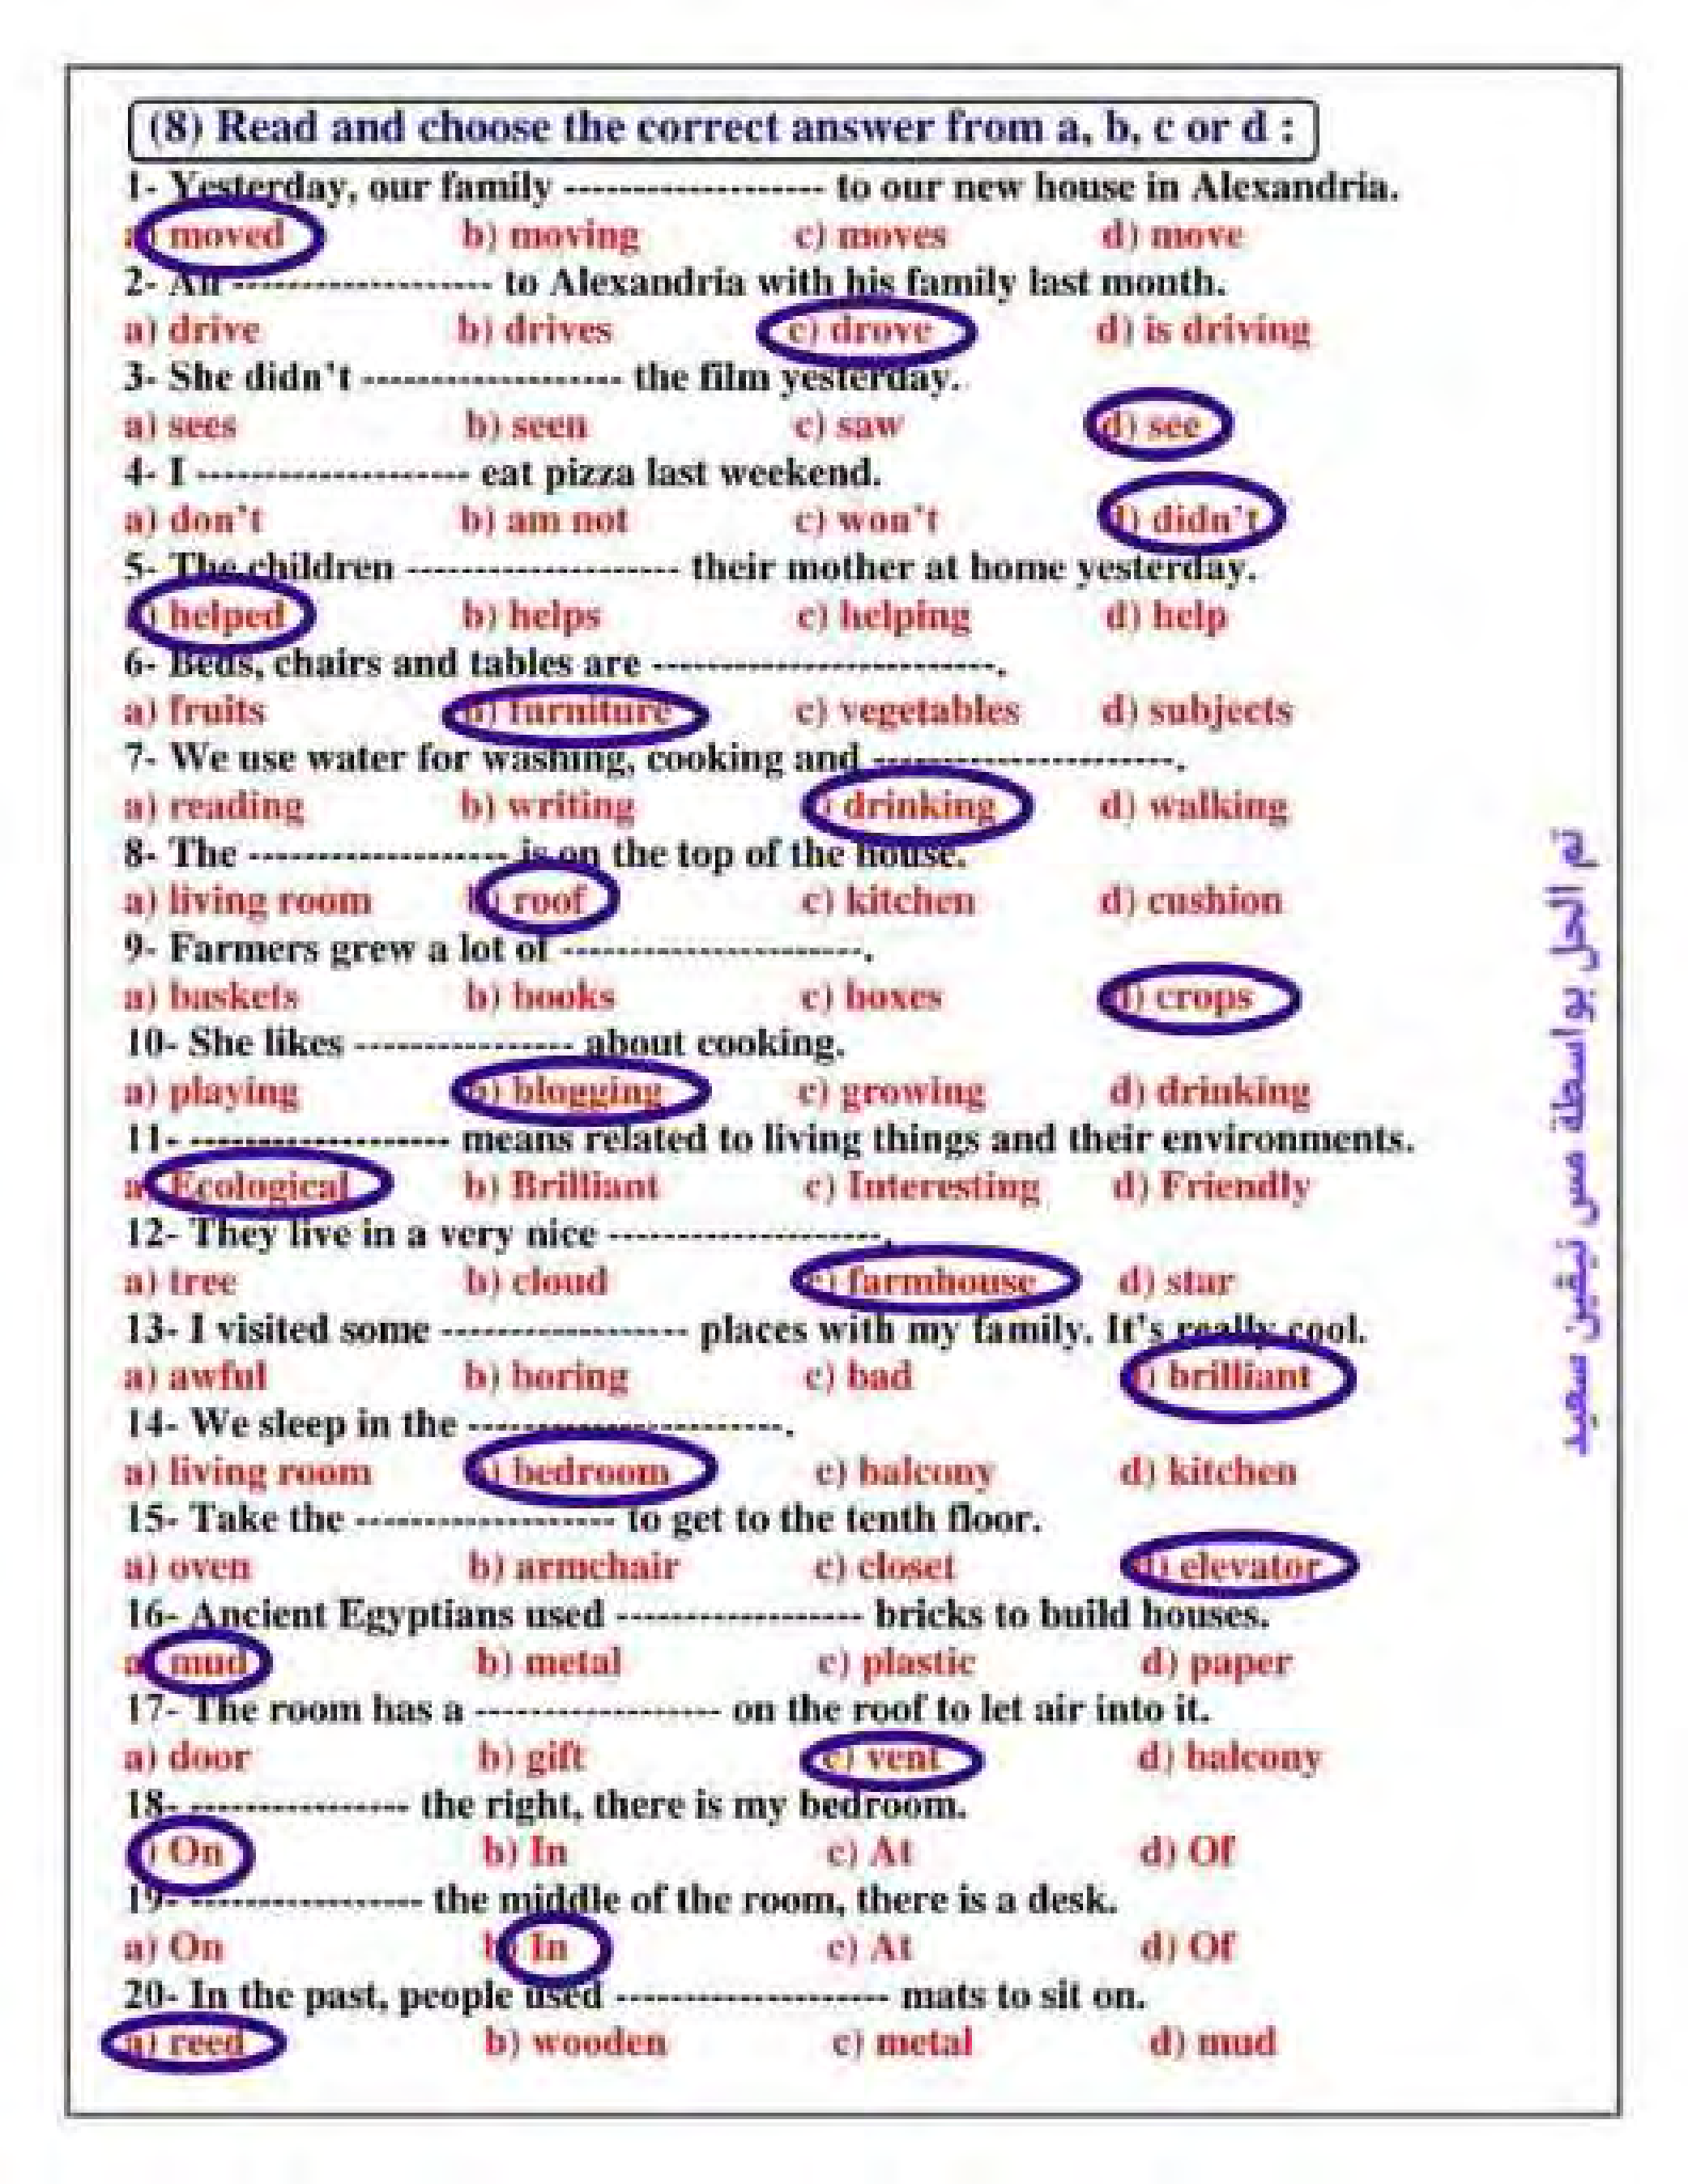 (8) Read and choose the correct answer from a, b, c or d :
1- Yesterday, our family ------------------- to our new house in Alexandria.
a) moved b) moving c) moves d) move
2- Ali ------------------- to Alexandria with his family last month.
a) drive b) drives c) drove d) is driving
3- She didn't ------------------- the film yesterday.
a) sees b) seen c) saw d) see
4- I -------------------- eat pizza last weekend.
a) don't b) am not c) won't d) didn't
5- The children -------------------- their mother at home yesterday.
a) helped b) helps c) helping d) help
6- Beds, chairs and tables are -------------------------.
a) fruits b) furniture c) vegetables d) subjects
7- We use water for washing, cooking and ----------------------.
a) reading b) writing c) drinking d) walking
8- The ------------------- is on the top of the house.
a) living room b) roof c) kitchen d) cushion
9- Farmers grew a lot of ----------------------.
a) baskets b) books c) boxes d) crops
10- She likes ---------------- about cooking.
a) playing b) blogging c) growing d) drinking
11- ------------------- means related to living things and their environments.
a) Ecological b) Brilliant c) Interesting d) Friendly
12- They live in a very nice --------------------.
a) tree b) cloud c) farmhouse d) star
13- I visited some ------------------ places with my family. It's really cool.
a) awful b) boring c) bad d) brilliant
14- We sleep in the -----------------------.
a) living room b) bedroom c) balcony d) kitchen
15- Take the ------------------- to get to the tenth floor.
a) oven b) armchair c) closet d) elevator
16- Ancient Egyptians used ------------------ bricks to build houses.
a) mud b) metal c) plastic d) paper
17- The room has a ------------------ on the roof to let air into it.
a) door b) gift c) vent d) balcony
18- ---------------- the right, there is my bedroom.
a) On b) In c) At d) Of
19- ----------------- the middle of the room, there is a desk.
a) On b) In c) At d) Of
20- In the past, people used -------------------- mats to sit on.
a) reed b) wooden c) metal d) mud
تم الحل بواسطة مس نيڤين سعيد